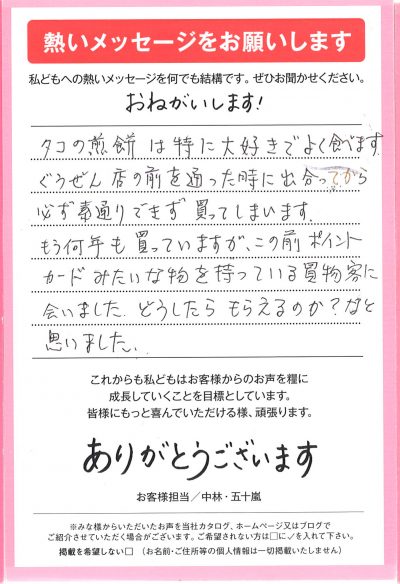 熱いメッセージをお願いします
私どもへの熱いメッセージを何でも結構です。ぜひお聞かせください。
おねがいします!
タコの煎餅は特に大好きでよく食べます。
ぐうぜん店の前を通った時に出合ってから
必ず素通りできず買ってしまいます。
もう何年も買っていますが、この前ポイント
カードみたいな物を持っている買物客に
会いました。どうしたらもらえるのか?なと
思いました。
これからも私どもはお客様からのお声を糧に
成長していくことを目標としています。
皆様にもっと喜んでいただける様、頑張ります。
ありがとうございます
お客様担当/中林・五十嵐
※みな様からいただいたお声を当社カタログ、ホームページ又はブログで
ご紹介させていただく場合がございます。ご希望されない方は□に✓を入れて下さい。
掲載を希望しない□ (お名前・ご住所等の個人情報は一切掲載いたしません)